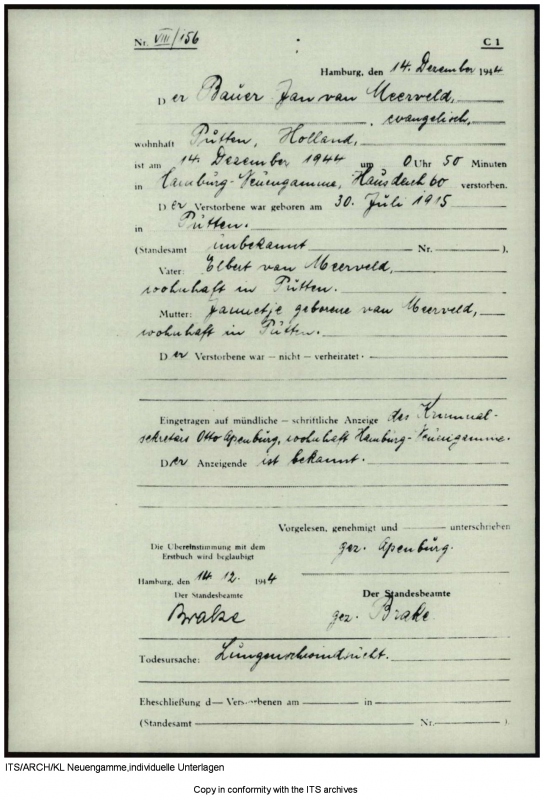 Nr. VIII/156 C 1
Hamburg, den 14. Dezember 1944
Der Bauer Jan van Meerveld,
, evangelisch,
wohnhaft Putten, Holland,
ist am 14. Dezember 1944 um 0 Uhr 50 Minuten
in Hamburg-Neuengamme, Hausdeich 60 verstorben.
Der Verstorbene war geboren am 30. Juli 1915
in Putten.
(Standesamt unbekannt Nr. ).
Vater: Elbert van Meerveld,
wohnhaft in Putten.
Mutter: Jannetje geborene van Meerveld,
wohnhaft in Putten.
Der Verstorbene war – nicht – verheiratet.
Eingetragen auf mündliche – schriftliche Anzeige des Kriminal-
sekretärs Otto Apenburg, wohnhaft Hamburg-Neuengamme.
Der Anzeigende ist bekannt.
Vorgelesen, genehmigt und unterschrieben
Die Übereinstimmung mit dem
Erstbuch wird beglaubigt
gez. Apenburg.
Hamburg, den 14. 12. 1944
Der Standesbeamte Der Standesbeamte
Brake gez. Brake
Todesursache: Lungenschwindsucht.
Eheschließung d Verstorbenen am in
(Standesamt Nr. ).
ITS/ARCH/KL Neuengamme,individuelle Unterlagen
Copy in conformity with the ITS archives